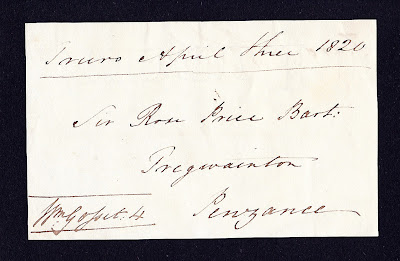 Truro April three 1820
Sir Rose Price Bart:
Tregwainton
Penzance
Wm Gosset. 4